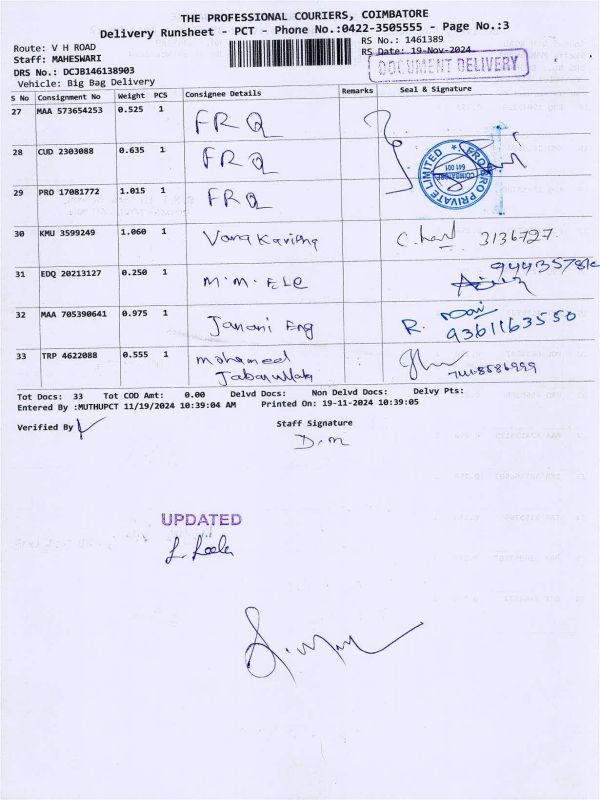 THE PROFESSIONAL COURIERS, COIMBATORE
Delivery Runsheet - PCT - Phone No.:0422-3505555 - Page No.:3
Route: V H ROAD
RS No.: 1461389
Staff: MAHESWARI
RS Date: 19-Nov-2024
DRS No.: DCJB146138903
DOCUMENT DELIVERY
Vehicle: Big Bag Delivery
S No Consignment No Weight PCS Consignee Details Remarks Seal & Signature
27 MAA 573654253 0.525 1 FRQ
28 CUD 2303088 0.635 1 FRQ
PRIVATE LIMITED
COIMBATORE
641 001
29 PRO 17081772 1.015 1 FRQ
30 KMU 3599249 1.060 1 3136727
31 EDQ 20213127 0.250 1 M.M. ELE
32 MAA 705390641 0.975 1 Janani Eng R. 9361163550
33 TRP 4622088 0.555 1 mohameed
Tot Docs: 33 Tot COD Amt: 0.00 Delvd Docs: Non Delvd Docs: Delvy Pts:
Entered By :MUTHUPCT 11/19/2024 10:39:04 AM Printed On: 19-11-2024 10:39:05
Verified By
Staff Signature
D.M
UPDATED